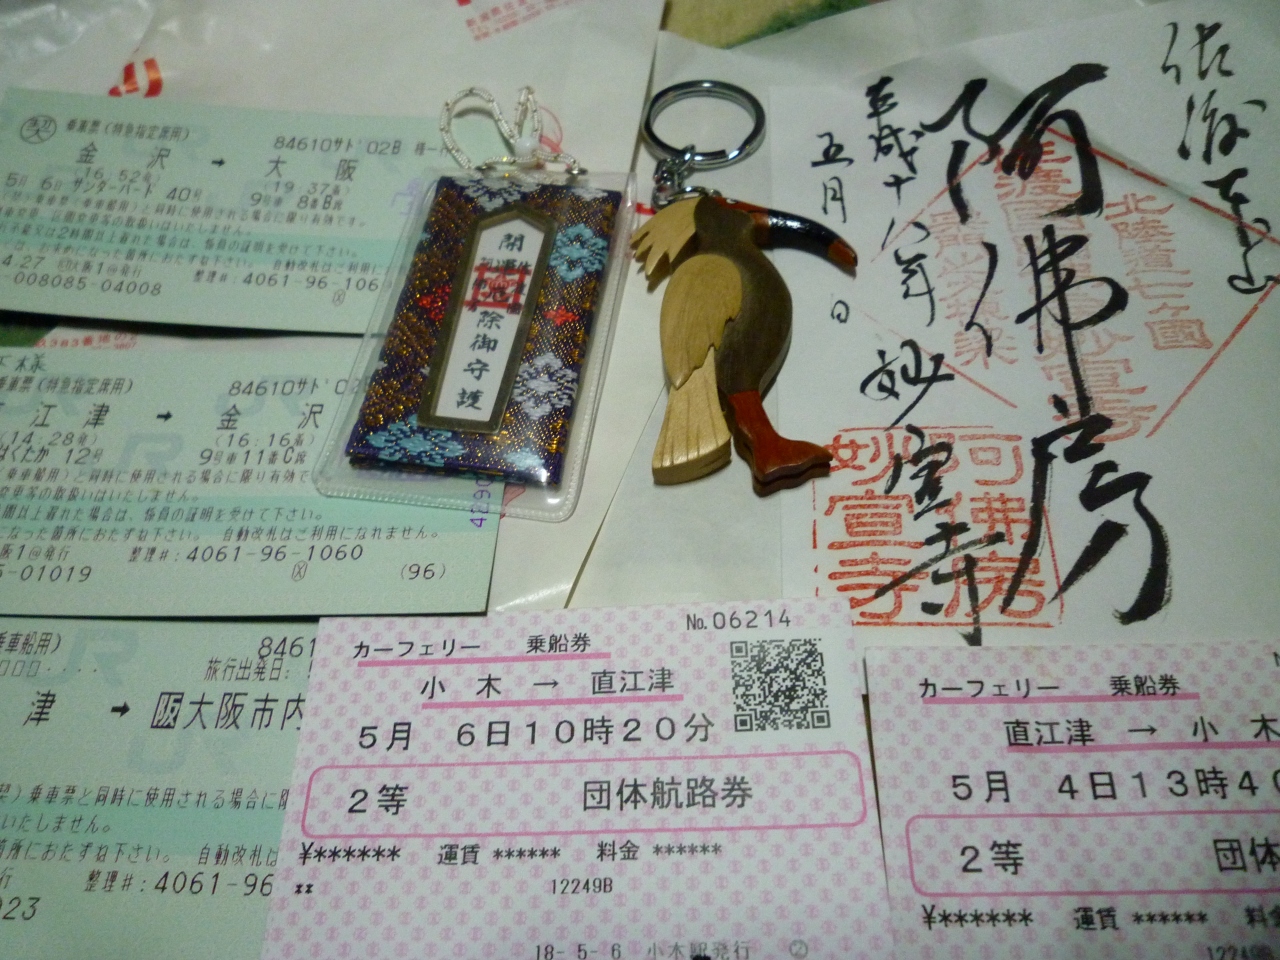 乗車票(特急指定席用)
84610サト゛02B
金 沢 → 大 阪
(16 52発) (19 37着)
5月 6日 サンダーバード 40号 9号車 8番B席
4.27 大阪1 発行 整理#:4061-96-106
008085-04008
乗車票(特急指定席用)
84610サト゛02
江 津 → 金 沢
(14 28発) (16:16着)
はくたか 12号 9号車11番C席
間以上遅れた場合は、係員の証明を受けて下さい。
になった箇所におたずね下さい。 自動改札はご利用になれません。
阪1 発行 整理#:4061-96-1060
5-01019 (96)
乗車船用)
8461
旅行出発日:
津 → 阪大阪市内
乗車票と同時に使用される場合に限
いたしません。
箇所におたずね下さい。 自動改札は
行 整理#:4061-96
023
開運
除御守護
佐渡
阿佛房
平成十八年
五月 日
妙宣寺
北陸道七ヶ國
阿佛房
妙宣寺
No.06214
カーフェリー 乗船券
小 木 → 直江津
5月 6日10時20分
2等 団体航路券
¥****** 運賃 ****** 料金 ******
**
12249B
18-5-6 小木駅発行 ②
カーフェリー 乗船券
直江津 → 小 木
5月 4日13時40
2等 団体
¥****** 運賃 ****** 料金
12249B